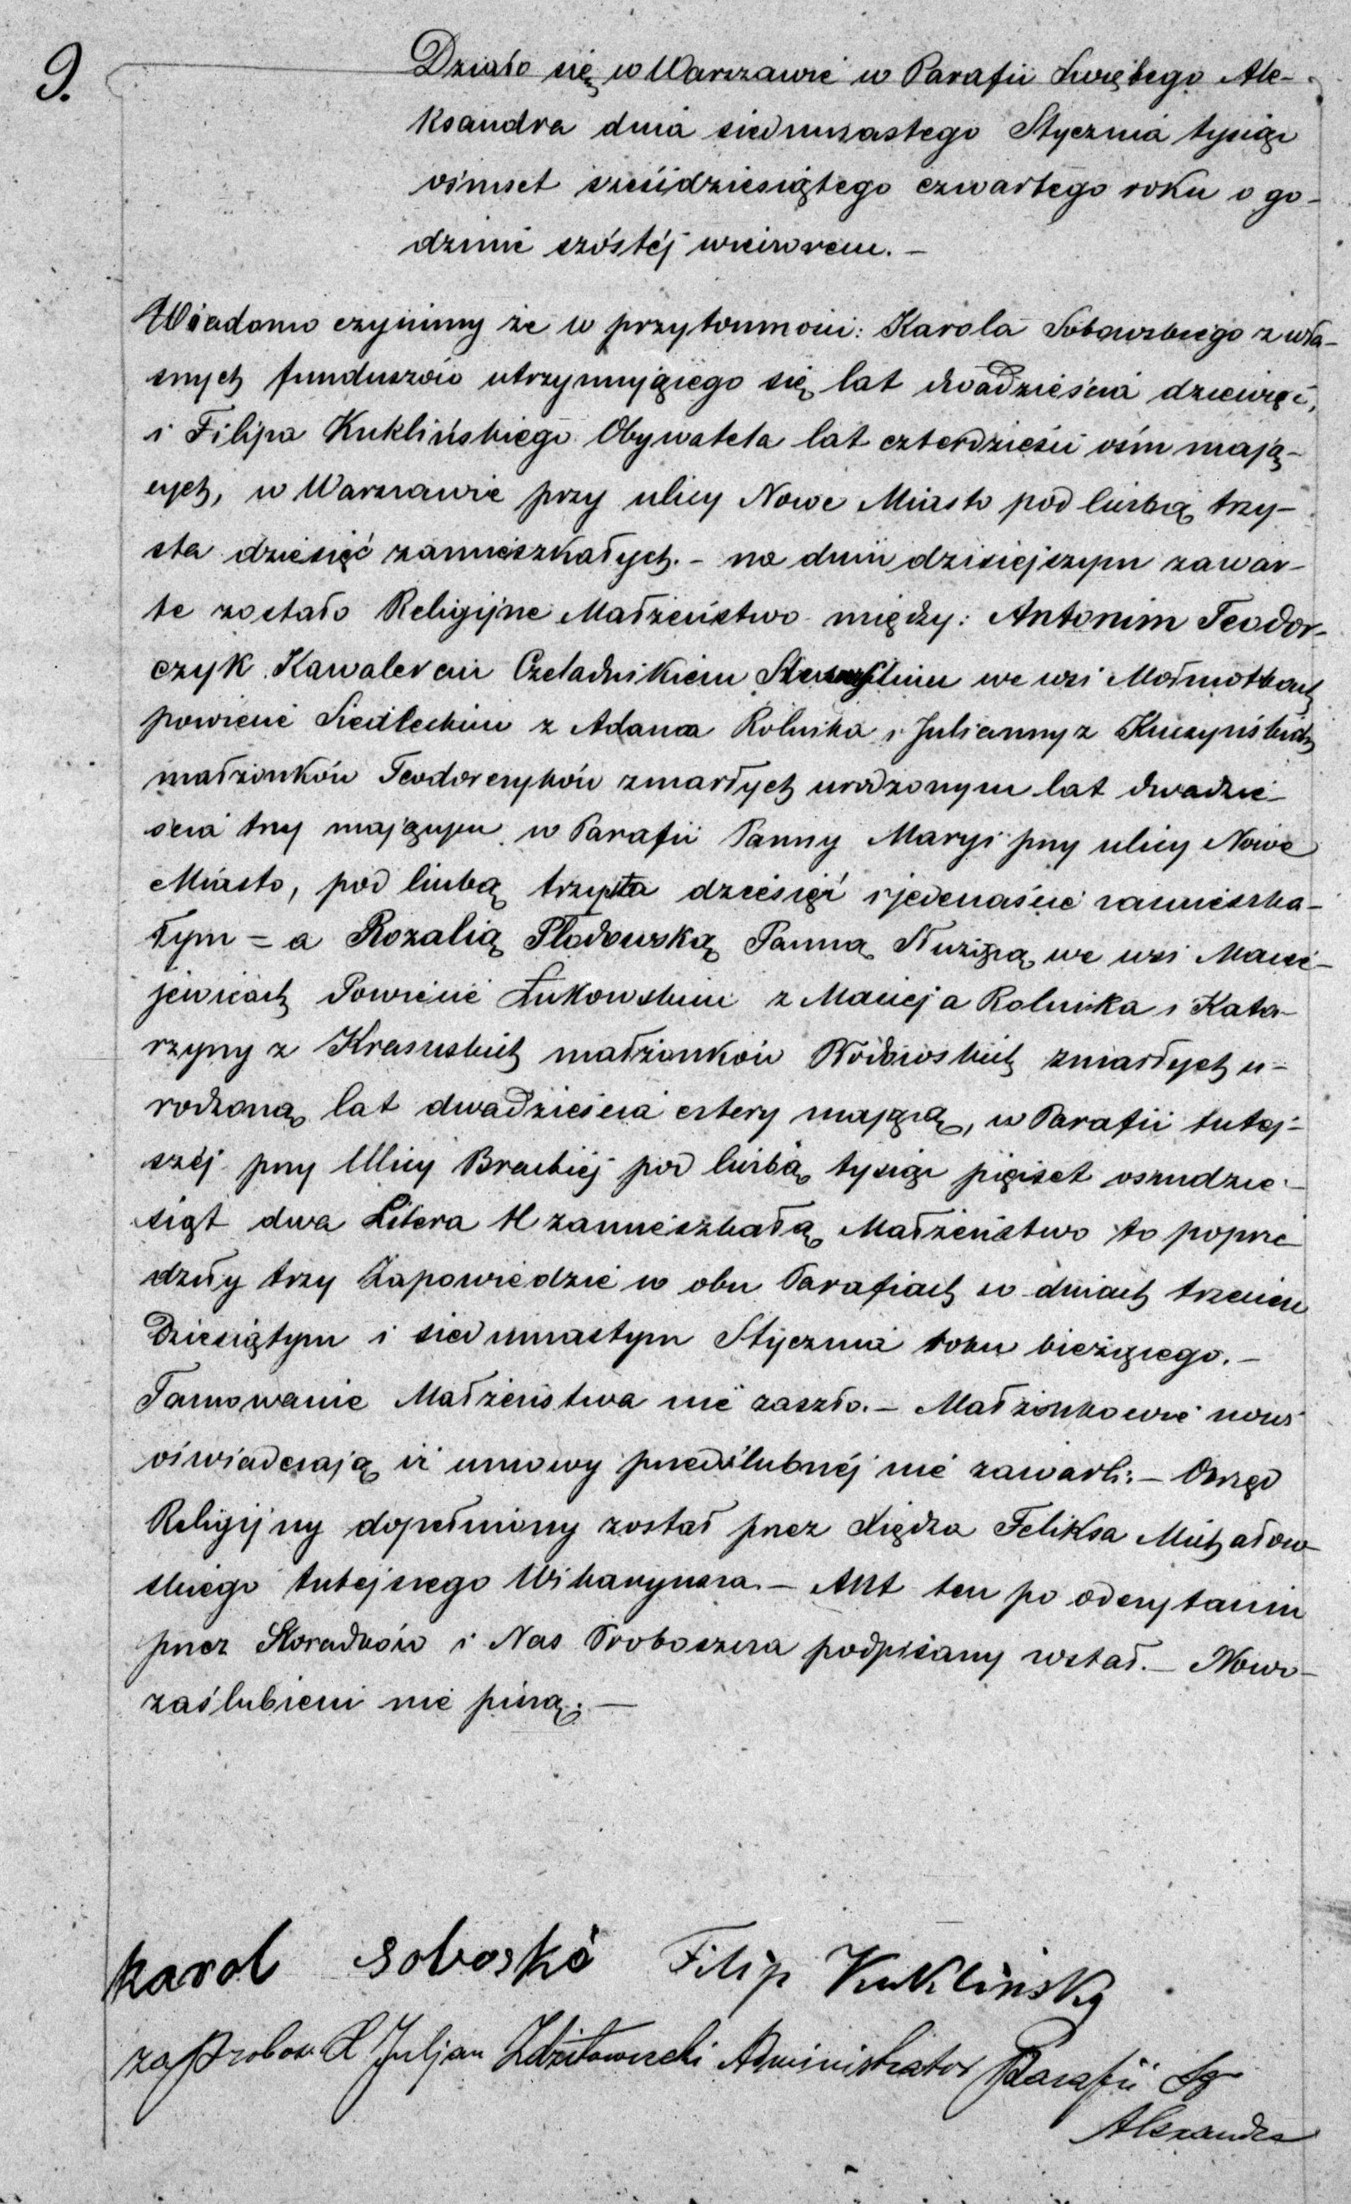 9.
Działo się w Warszawie w Parafii Świętego Ale-
ksandra dnia siedmnastego Stycznia tysiąc
ośmset sześćdziesiątego czwartego roku o go-
dzinie szóstéj wieczorem. –
Wiadomo czynimy że w przytomności: Karola Sobowskiego z wła-
snych funduszów utrzymującego się lat dwadzieścia dziewięć,
i Filipa Kuklińskiego Obywatela lat czterdzieści ośm mają-
cych, w Warszawie przy ulicy Nowe Miasto pod liczbą trzy-
sta dziesięć zamieszkałych. – na dniu dzisiejszym zawar-
te zostało Religijne Małżeństwo między: Antonim Teodor-
czyk Kawalerem Czeladnikiem we wsi
powiecie Siedleckim z Adama Rolnika i Julianny z Kuczyńskich
małżonków Teodorczyków zmarłych urodzonym lat dwadzie-
ścia trzy mającym w Parafii Panny Maryi przy ulicy Nowe
Miasto, pod liczbą trzysta dziesięć i jedenaście zamieszka-
łym = a Rozalią Płodowską Panną Służącą we wsi Macie-
jewicach Powiecie Łukowskim z Macieja Rolnika i Kata-
rzyny z Krasuskich małżonków zmarłych u-
rodzoną lat dwadzieścia cztery mającą, w Parafii tutej-
széj przy Ulicy Brackiéj pod liczbą tysiąc pięćset ośmdzie-
siąt dwa Litera H zamieszkałą Małżeństwo to poprze
dziły trzy Zapowiedzie w obu Parafiach w dniach trzecim
Dziesiątym i siedmnastym Stycznia roku bieżącego. –
Tamowanie Małżeństwa nie zaszło. – Małżonkowie nowi
oświadczają iż umowy przedślubnéj nie zawarli. – Obrzęd
Religijny dopełniony został przez Xiędza Feliksa Michałow-
skiego tutejszego Wikaryusza. – Akt ten po odczytaniu
przez Świadków i Nas Proboszcza podpisany został. – Nowo-
zaślubieni nie piszą. –
Karol Soboski Filip Kuklinsky
X Juljan Administrator Parafii Sgo
Alexandra